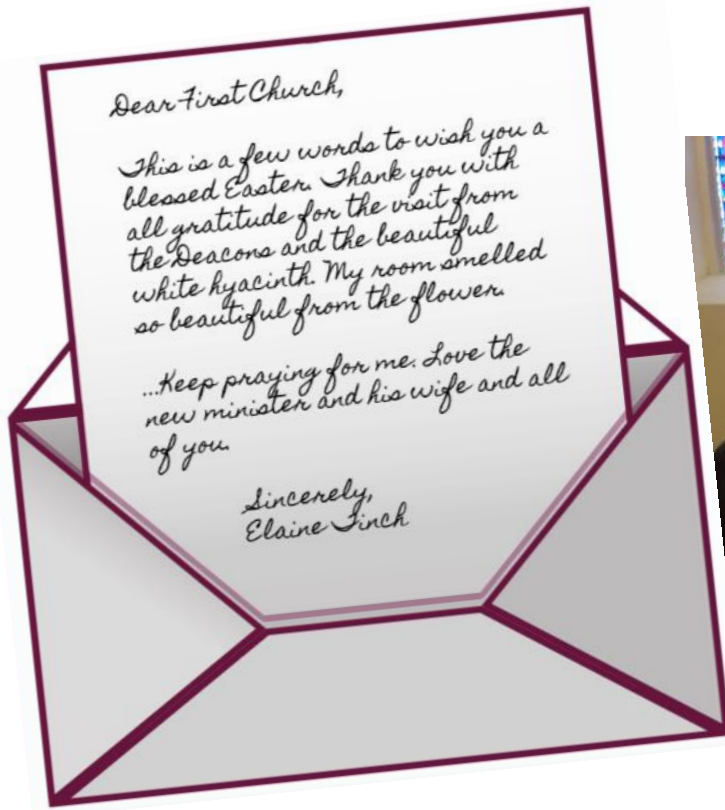 Dear First Church,
This is a few words to wish you a
blessed Easter. Thank you with
all gratitude for the visit from
the Deacons and the beautiful
white hyacinth. My room smelled
so beautiful from the flower.
...Keep praying for me. Love the
new minister and his wife and all
of you.
Sincerely,
Elaine Finch